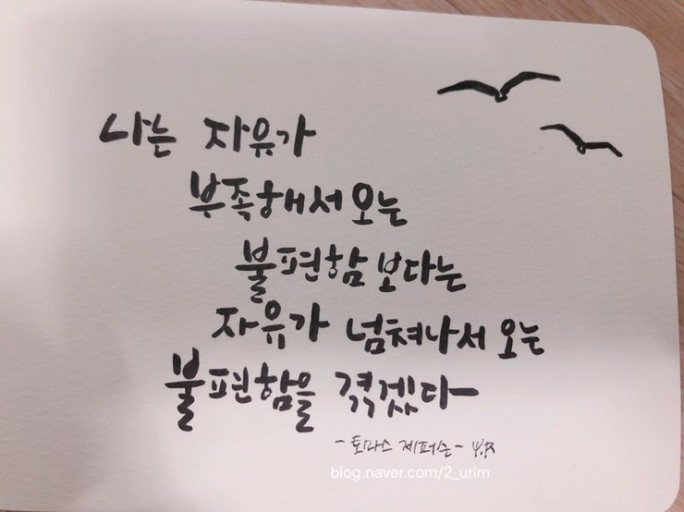 나는 자유가
부족해서 오는
불편함 보다는
자유가 넘쳐나서 오는
불편함을 겪겠다
- 토마스 제퍼슨 -
blog.naver.com/2_urim